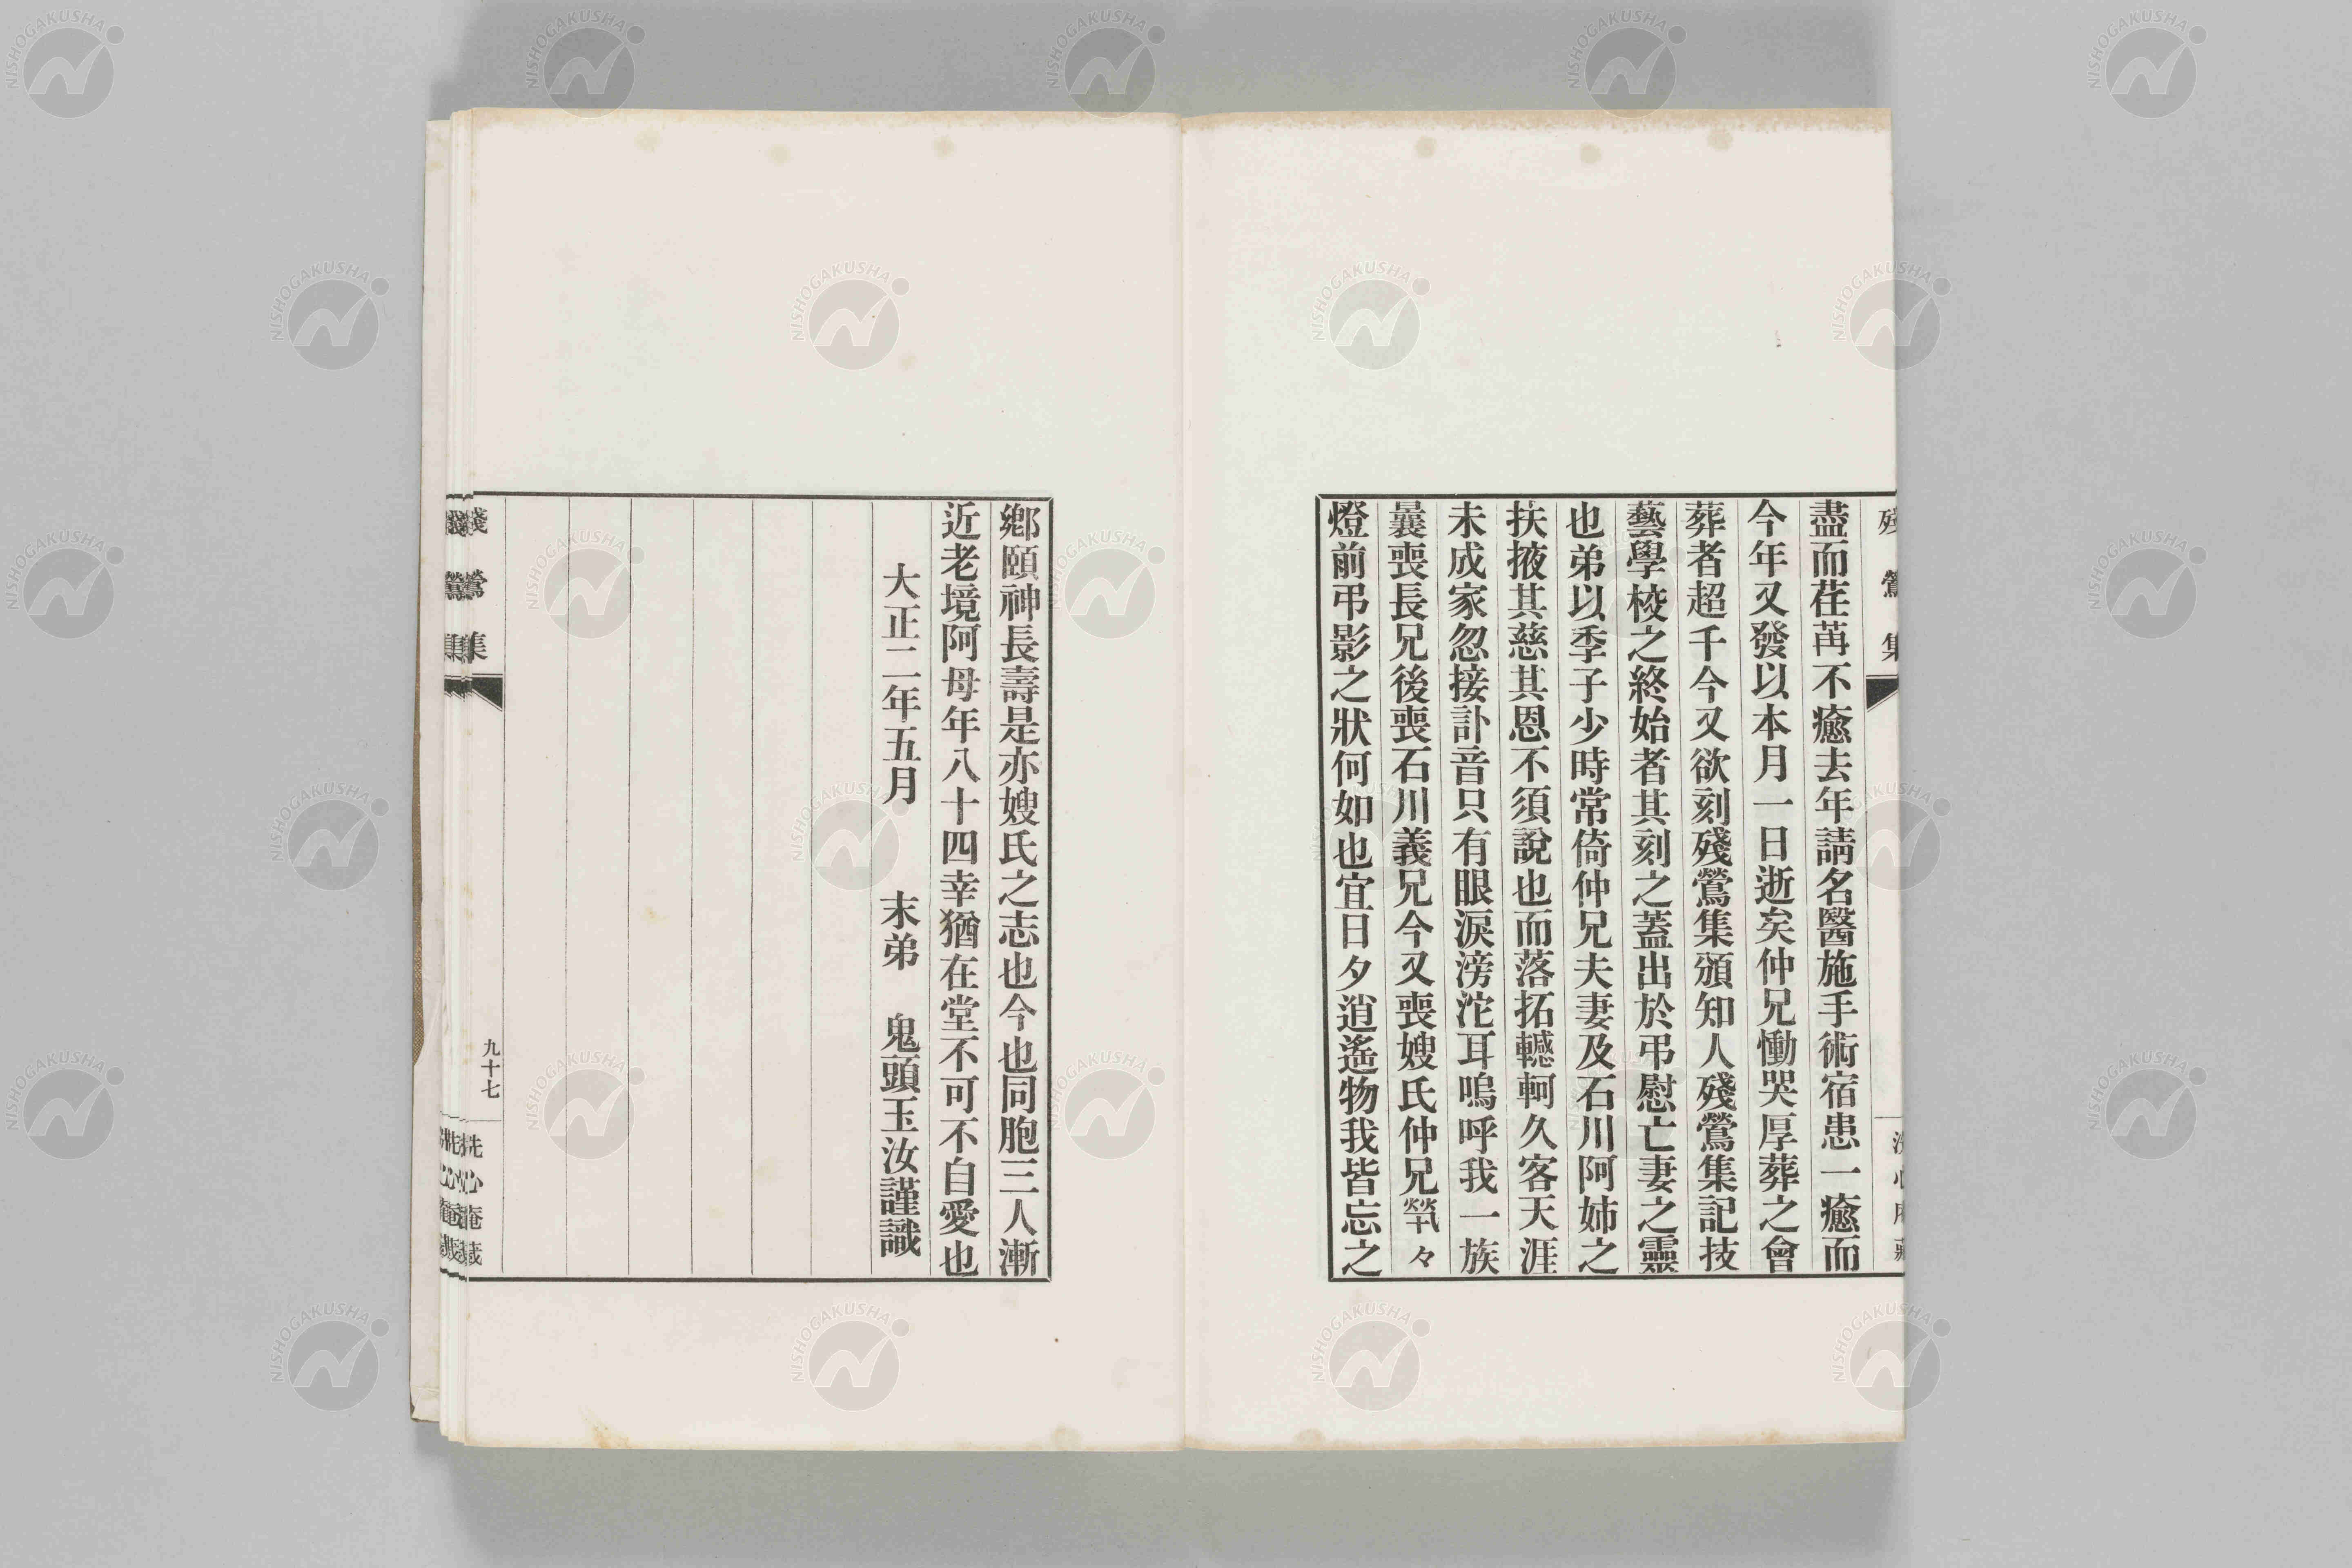 殘鶯集
盡而荏苒不癒去年請名醫施手術宿患一癒而
今年又發以本月一日逝矣仲兄慟哭厚葬之會
葬者超千今又欲刻殘鶯集頒知人殘鶯集記技
藝學校之終始者其刻之蓋出於弔慰亡妻之靈
也弟以季子少時常倚仲兄夫妻及石川阿姉之
扶掖其慈其恩不須說也而落拓轗軻久客天涯
未成家忽接訃音只有眼淚滂沱耳嗚呼我一族
曩喪長兄後喪石川義兄今又喪嫂氏仲兄煢々
燈前弔影之狀何如也宜日夕逍遙物我皆忘之
鄉頤神長壽是亦嫂氏之志也今也同胞三人漸
近老境阿母年八十四幸猶在堂不可不自愛也
大正二年五月　末弟　鬼頭玉汝謹識
殘鶯集
九十七
洗心庵藏
NISHOGAKUSHA